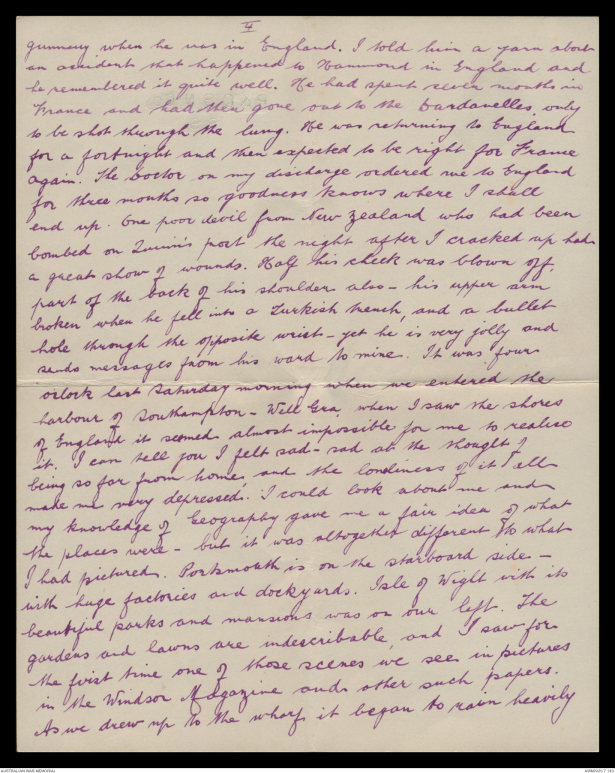 4
gunnery when he was in England. I told him a yarn about
an accident that happened to Hammond in England and
he remembered it quite well. He had spent seven months in
France and had then gone out to the Dardanelles only
to be shot through the lung. He was returning to England
for a fortnight and then expected to be right for France
again. The Doctor on my discharge ordered me to England
for three months so goodness knows where I shall
end up. One poor devil from New Zealand who had been
bombed on Quinn's post the night after I cracked up had
a great show of wounds. Half his cheek was blown off,
part of the back of his shoulder also - his upper arm
broken when he fell into a Turkish trench, and a bullet
hole through the opposite wrist - yet he is very jolly and
sends messages from his ward to mine. It was four
oclock last Saturday morning when we entered the
harbour of Southampton - Well Gra, when I saw the shores
of England it seemed almost impossible for me to realise
it. I can tell you I felt sad - sad at the thought of
being so far from home, and the loneliness of it all
made me very depressed. I could look about me and
my knowledge of Geography gave me a fair idea of what
the places were - but it was altogether different to what
I had pictured. Portsmouth is on the starboard side -
with huge factories and dockyards. Isle of Wight with its
beautiful parks and mansions was on our left. The
gardens and lawns are indescribable, and I saw for
the first time one of those scenes we see in pictures
in the Windsor Magazine and other such papers.
As we drew up to the wharf it began to rain heavily
AUSTRALIAN WAR MEMORIAL